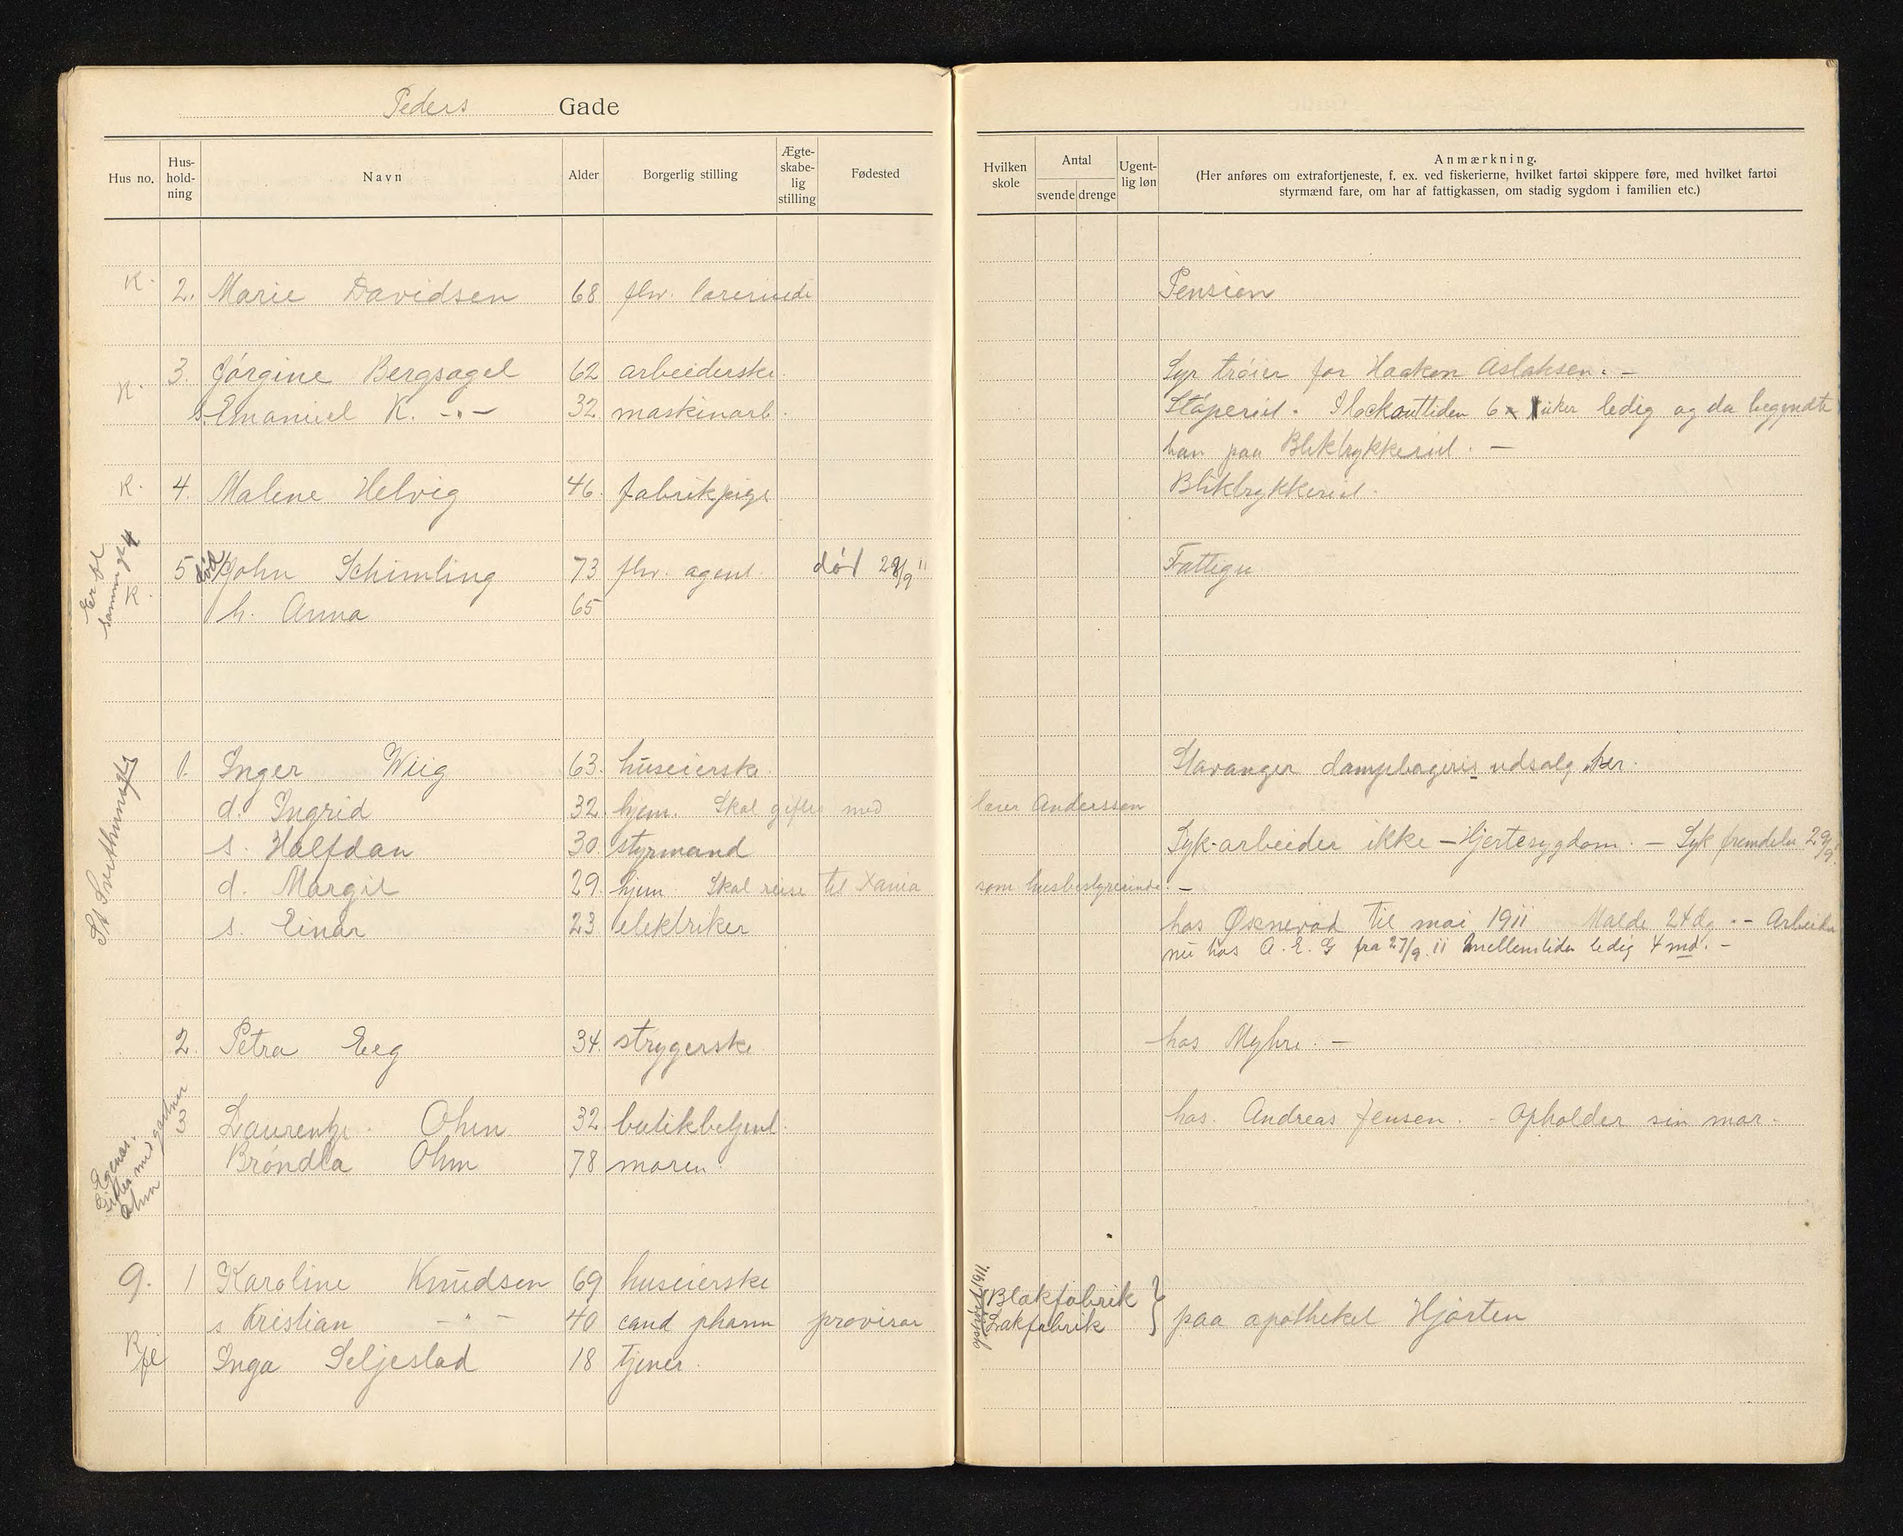 Peders Gade
Hus no. Hus-hold-ning Navn Alder Borgerlig stilling Ægte-skabe-lig stilling Fødested Hvilken skole Antal svende drenge Ugent-lig løn Anmærkning.
(Her anføres om extrafortjeneste, f. ex. ved fiskerierne, hvilket fartøi skippere føre, med hvilket fartøi
styrmænd fare, om har af fattigkassen, om stadig sygdom i familien etc.)
K. 2. Marie Davidsen 68 fhv. lærerinde Pension
K. 3. Jörgine Bergsagel 62 arbeiderske. Syr tröier for Haakon Aslaksen. -
s. Emanuel K. -"- 32 maskinarb. Støperiet. I lockouttiden 6 uker ledig og da begyndte
han paa Bliktrykkeriet. -
K. 4. Malene Helvig 46. fabrikpige Bliktrykkeriet.
K. 5 död John Schimling 73 fhv. agent. död 29/9 11 Fattigu
h. Anna 65
St Svithunsgt
1. Inger Wiig 63. huseierske. Stavanger dampbageris udsalg her.
d. Ingrid 32. hjem. Skal giftes med lærer Anderssen
s. Halfdan 30. styrmand Syk-arbeider ikke - Hjertesygdom. - Syk fremdeles 29/9
d. Margit 29. hjem. Skal reise til Xania som husbestyrerinde. -
s. Einar 23 elektriker hos Øxnevad til mai 1911 Malde 24 dg. - Arbeider
nu hos A. E. G fra 27/9. 11 mellemtiden ledig 4 md. -
2. Petra Eeg 34. strygerske hos Myhre. -
3 Laurentze Ohm 32. butikbetjent. hos Andreas Jensen. - Opholder sin mor.
Bröndla Ohm 78 moren.
9. 1 Karoline Knudsen 69 huseierske
s Kristian -"- 40 cand pharm provisor Blækfabrik Lakfabrik } paa apotheket Hjorten
Inga Seljestad 18 tjener.